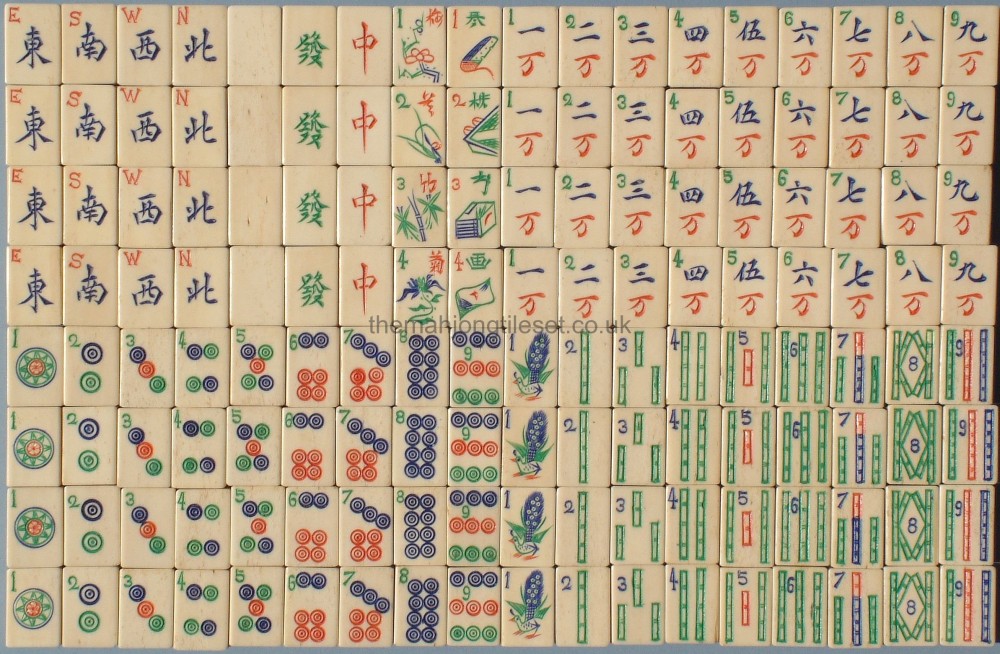 E S W N 1 梅 1 1 2 3 4 5 6 7 8 9
東 南 西 北 發 中 一 二 三 四 伍 六 七 八 九
万 万 万 万 万 万 万 万 万
E S W N 2 兰 2 棋 1 2 3 4 5 6 7 8 9
東 南 西 北 發 中 一 二 三 四 伍 六 七 八 九
万 万 万 万 万 万 万 万 万
E S W N 3 竹 3 1 2 3 4 5 6 7 8 9
東 南 西 北 發 中 一 二 三 四 伍 六 七 八 九
万 万 万 万 万 万 万 万 万
E S W N 4 菊 4 画 1 2 3 4 5 6 7 8 9
東 南 西 北 發 中 一 二 三 四 伍 六 七 八 九
万 万 万 万 万 万 万 万 万
themahjongtileset.co.uk
1 2 3 4 5 6 7 8 9 1 2 3 4 5 6 7 8 9
1 2 3 4 5 6 7 8 9 1 2 3 4 5 6 7 8 9
1 2 3 4 5 6 7 8 9 1 2 3 4 5 6 7 8 9
1 2 3 4 5 6 7 8 9 1 2 3 4 5 6 7 8 9